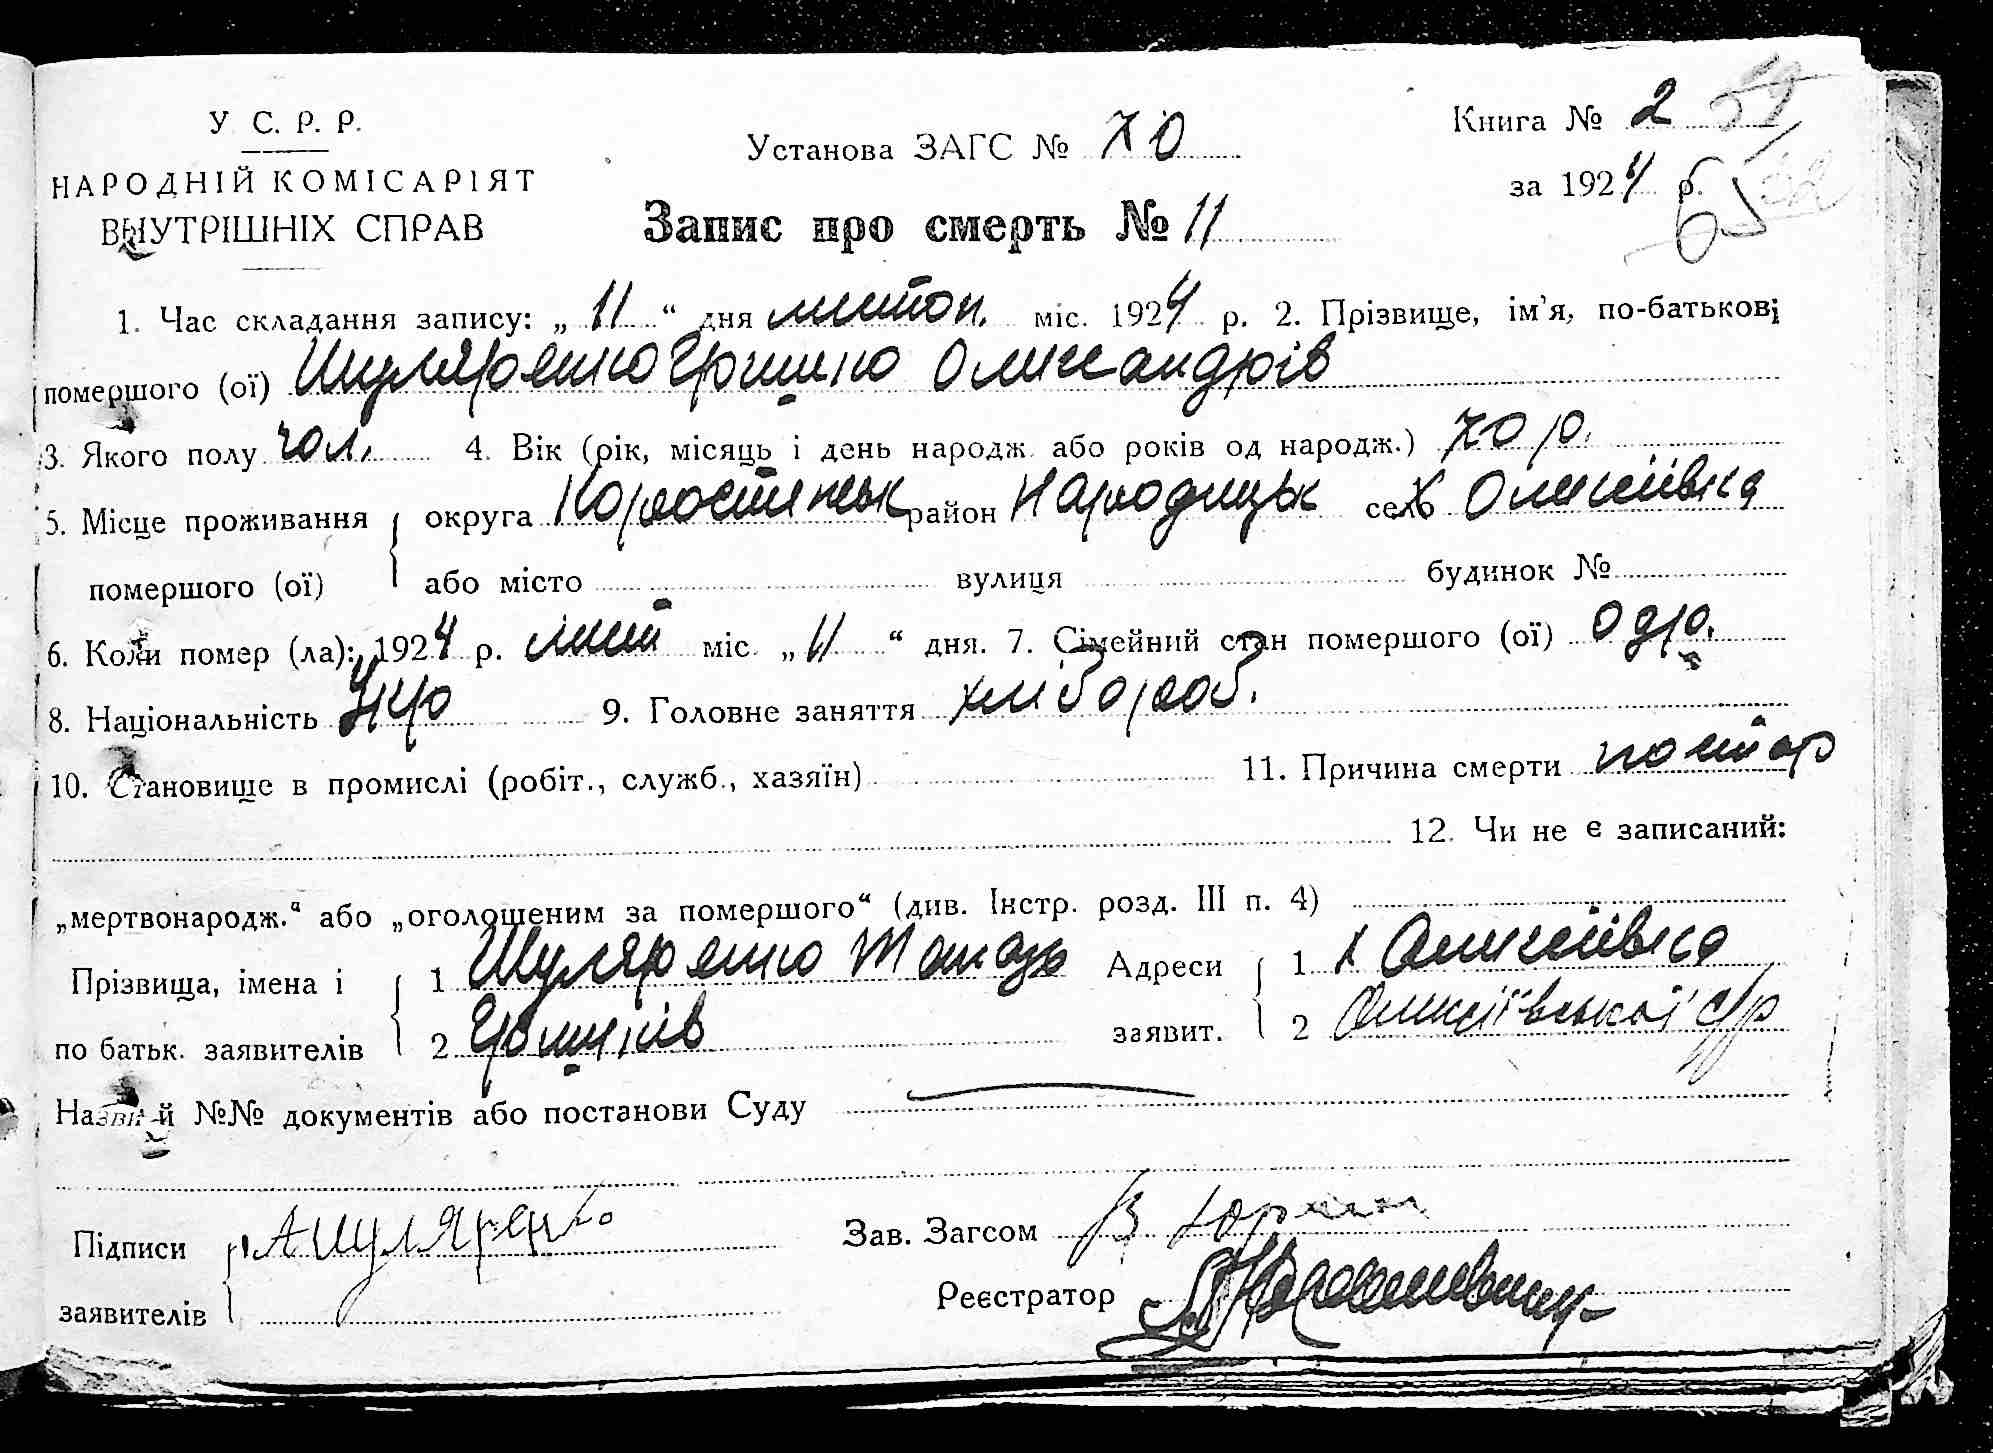 У С. Р. Р.
НАРОДНІЙ КОМІСАРІЯТ
ВНУТРІШНІХ СПРАВ
Установа ЗАГС № 70
Книга № 2
за 1924 р.
Запис про смерть № 11
1. Час складання запису: „ 11 “ дня листоп. міс. 1924 р. 2. Прізвище, ім’я, по-батькові
помершого (ої) Шуляренко Грицько Олександрів
3. Якого полу чол. 4. Вік (рік, місяць і день народж. або років од народж.) 70 р.
5. Місце проживання округа Коростенськ район Народицьк село Олексіївка
помершого (ої) або місто вулиця будинок №
6. Коли помер (ла): 1924 р. лист міс. „ 11 “ дня. 7. Сімейний стан помершого (ої) одр.
8. Національність Укр 9. Головне заняття хлібороб.
10. Становище в промислі (робіт., служб., хазяїн) 11. Причина смерти
12. Чи не є записаний:
„мертвонародж.“ або „оголошеним за помершого“ (див. Інстр. розд. III п. 4)
Прізвища, імена і 1 Шуляренко Адреси 1 х Олексіївка
по батьк. заявителів 2 Грицьків заявит. 2 Олексіївської с/р
Назви й №№ документів або постанови Суду
Підписи А Шуляренко Зав. Загсом
заявителів Реєстратор